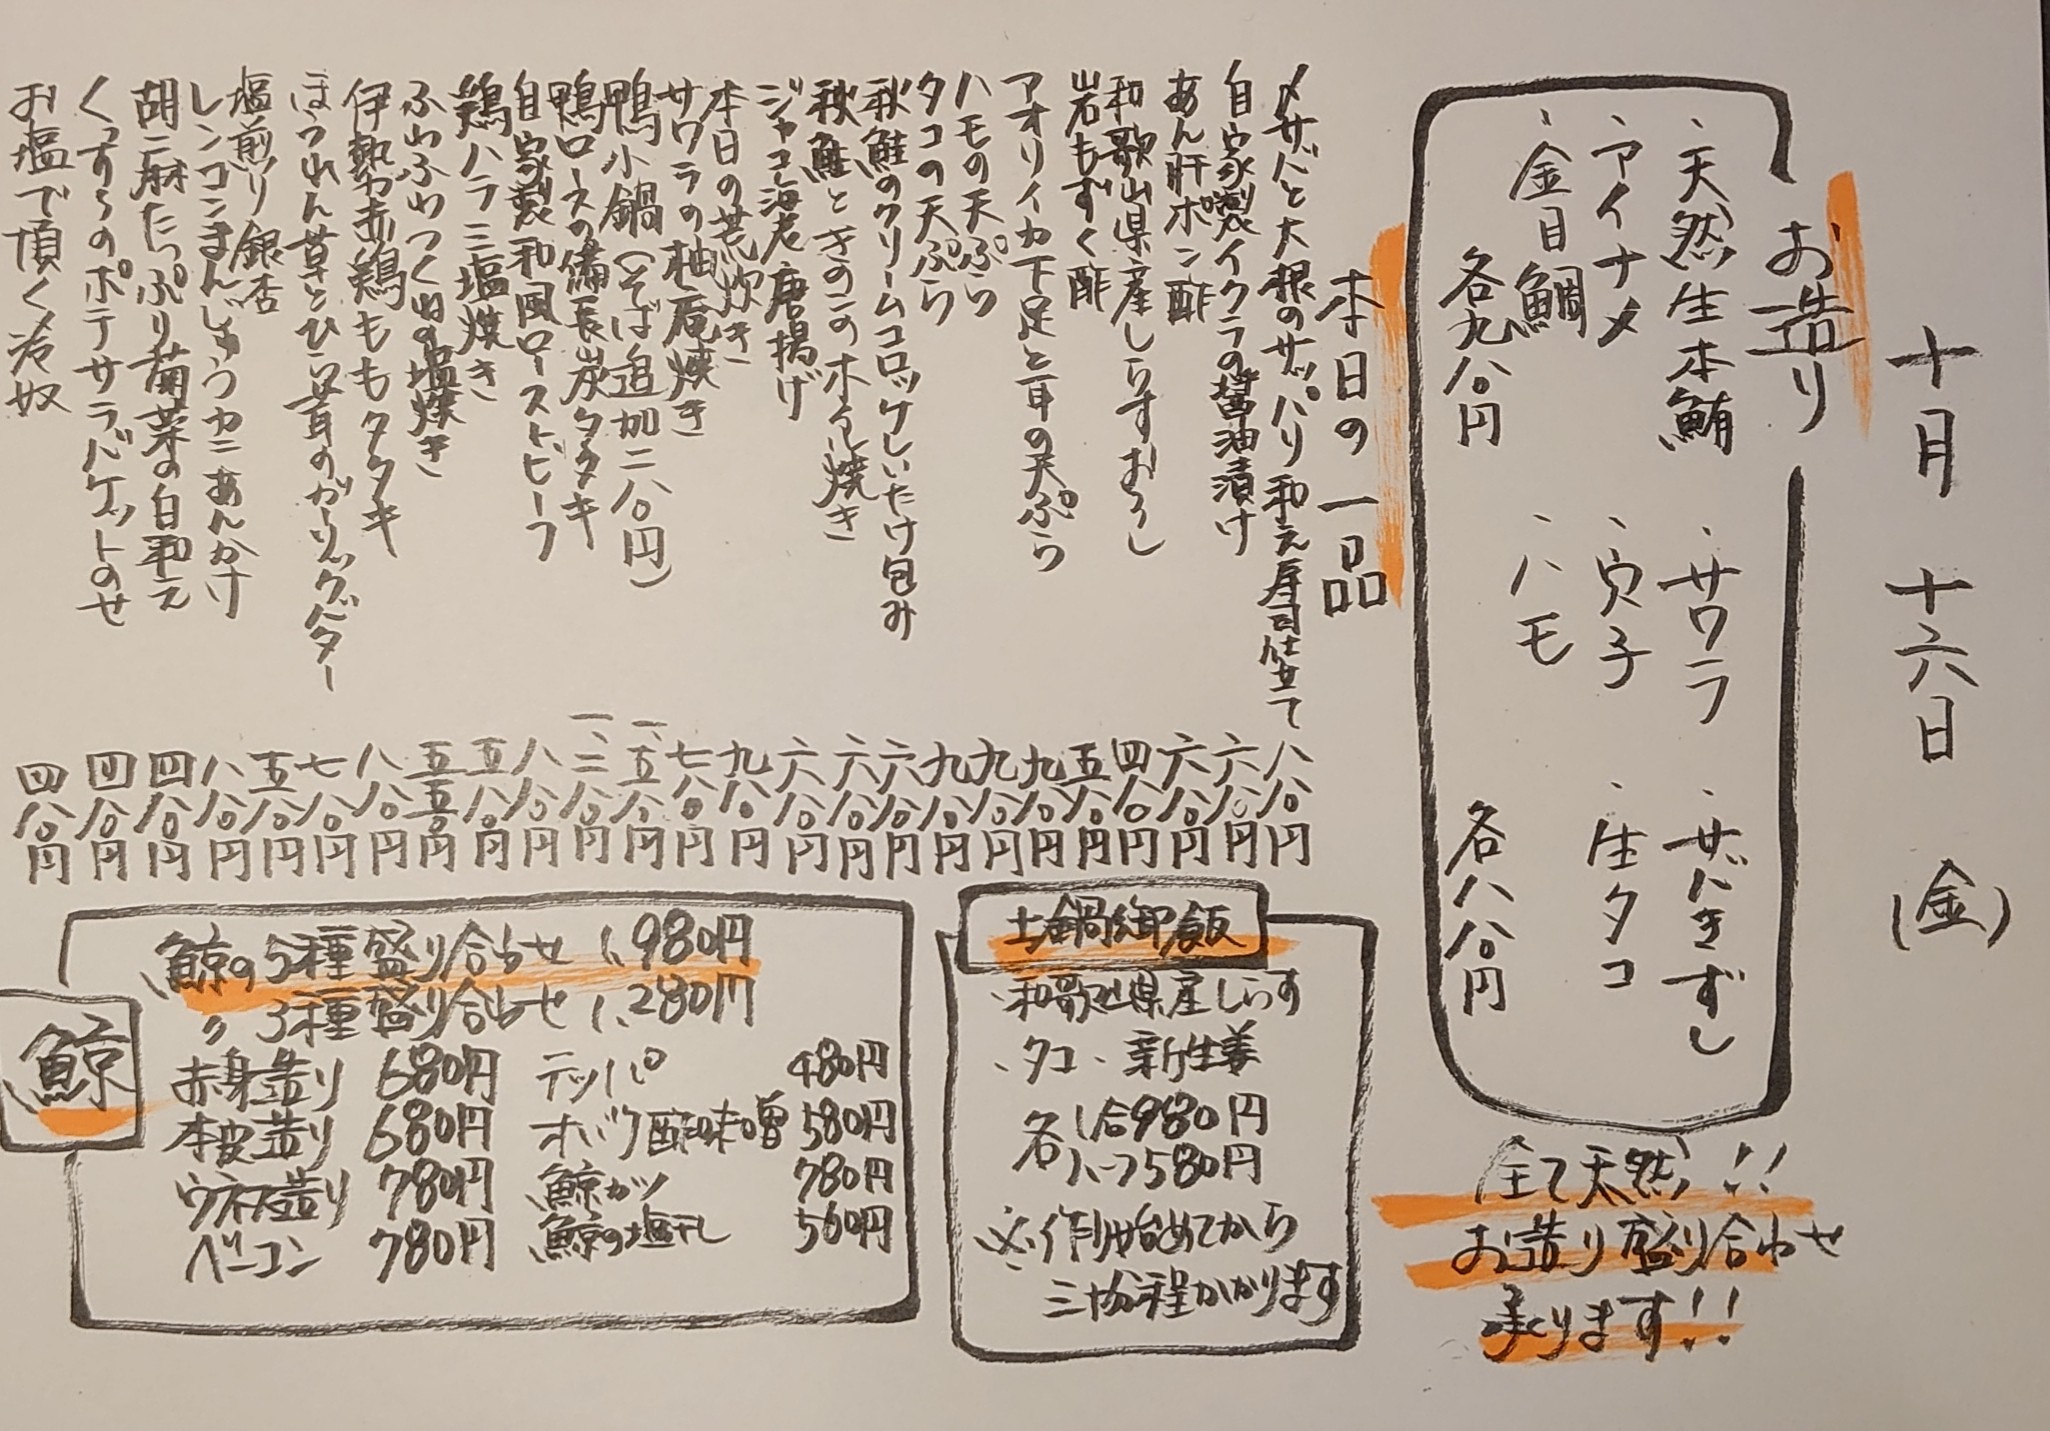 十月 十六日 (金)
お造り
・天然生本鮪 ・サワラ ・サバきずし
・アイナメ ・穴子 ・生タコ
・金目鯛 ・ハモ
各九八〇円 各八八〇円
全て天然!!
お造り盛り合わせ
承ります!!
本日の一品
〆サバと大根のサッパリ和え寿司仕立て 八八〇円
自家製イクラの醤油漬け 六八〇円
あん肝ポン酢 六八〇円
和歌山県産しらすおろし 四八〇円
岩もずく酢 五八〇円
アオリイカ下足と耳の天ぷら 九八〇円
ハモの天ぷら 九八〇円
タコの天ぷら 九八〇円
秋鮭のクリームコロッケしいたけ包み 六八〇円
秋鮭ときのこのホイル焼き 六八〇円
ジャコ海老唐揚げ 六八〇円
本日の荒炊き 九八〇円
サワラの柚庵焼き 七八〇円
鴨小鍋(そば追加二八〇円) 一、五八〇円
鴨ロースの備長炭タタキ 一、二八〇円
自家製和風ローストビーフ 八八〇円
鶏ハラミ塩焼き 五八〇円
ふわふわつくねの塩焼き 五五〇円
伊勢赤鶏ももタタキ 八八〇円
ほうれん草とひら茸のガーリックバター 七八〇円
塩煎り銀杏 五八〇円
レンコンまんじゅうカニあんかけ 八八〇円
胡麻たっぷり菊菜の白和え 四八〇円
くずしのポテサラバケットのせ 四八〇円
お塩で頂く冷奴 四八〇円
土鍋御飯
・和歌山県産しらす
・タコ ・新生姜
各 1合980円
各 ハーフ580円
※作り始めてから
三十分程かかります
鯨
鯨の5種盛り合わせ 1,980円
〃 3種盛り合わせ 1,280円
赤身造り 680円 テッパ 480円
本皮造り 680円 オバケ酢味噌 580円
ウネス造り 780円 鯨カツ 780円
ベーコン 780円 鯨の塩干し 560円